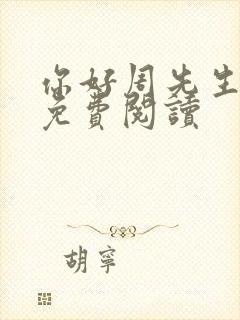 你好周先生
免費閱讀
胡寧